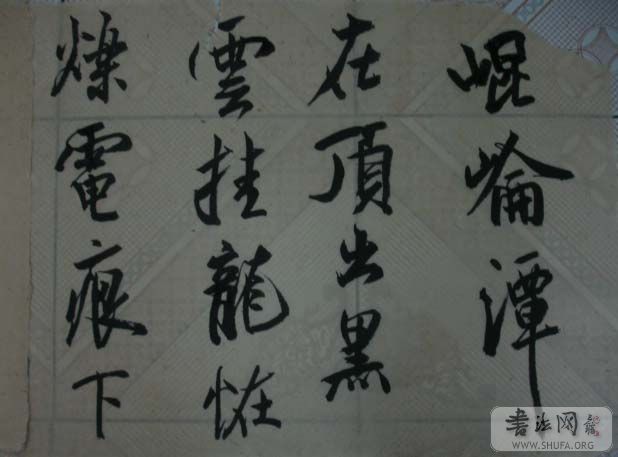 崐崘潭
在頂出黑
雲挂龍恠
爍電痕下
書法网
WWW.SHUFA.ORG